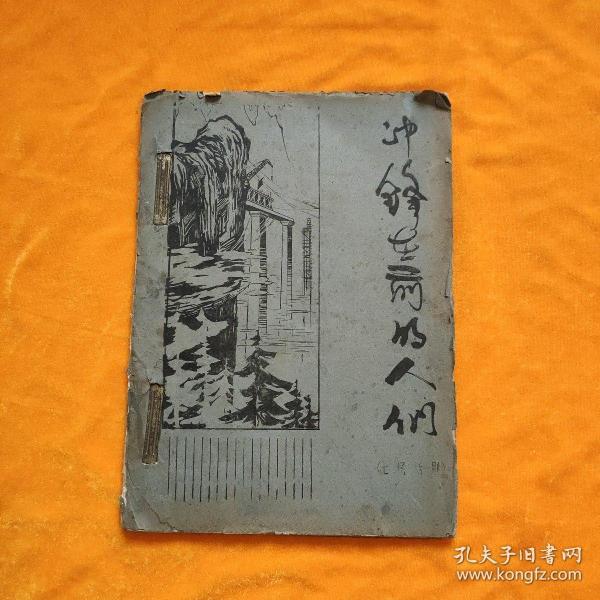 冲锋在前的人们
孔夫子旧書网
www.kongfz.com